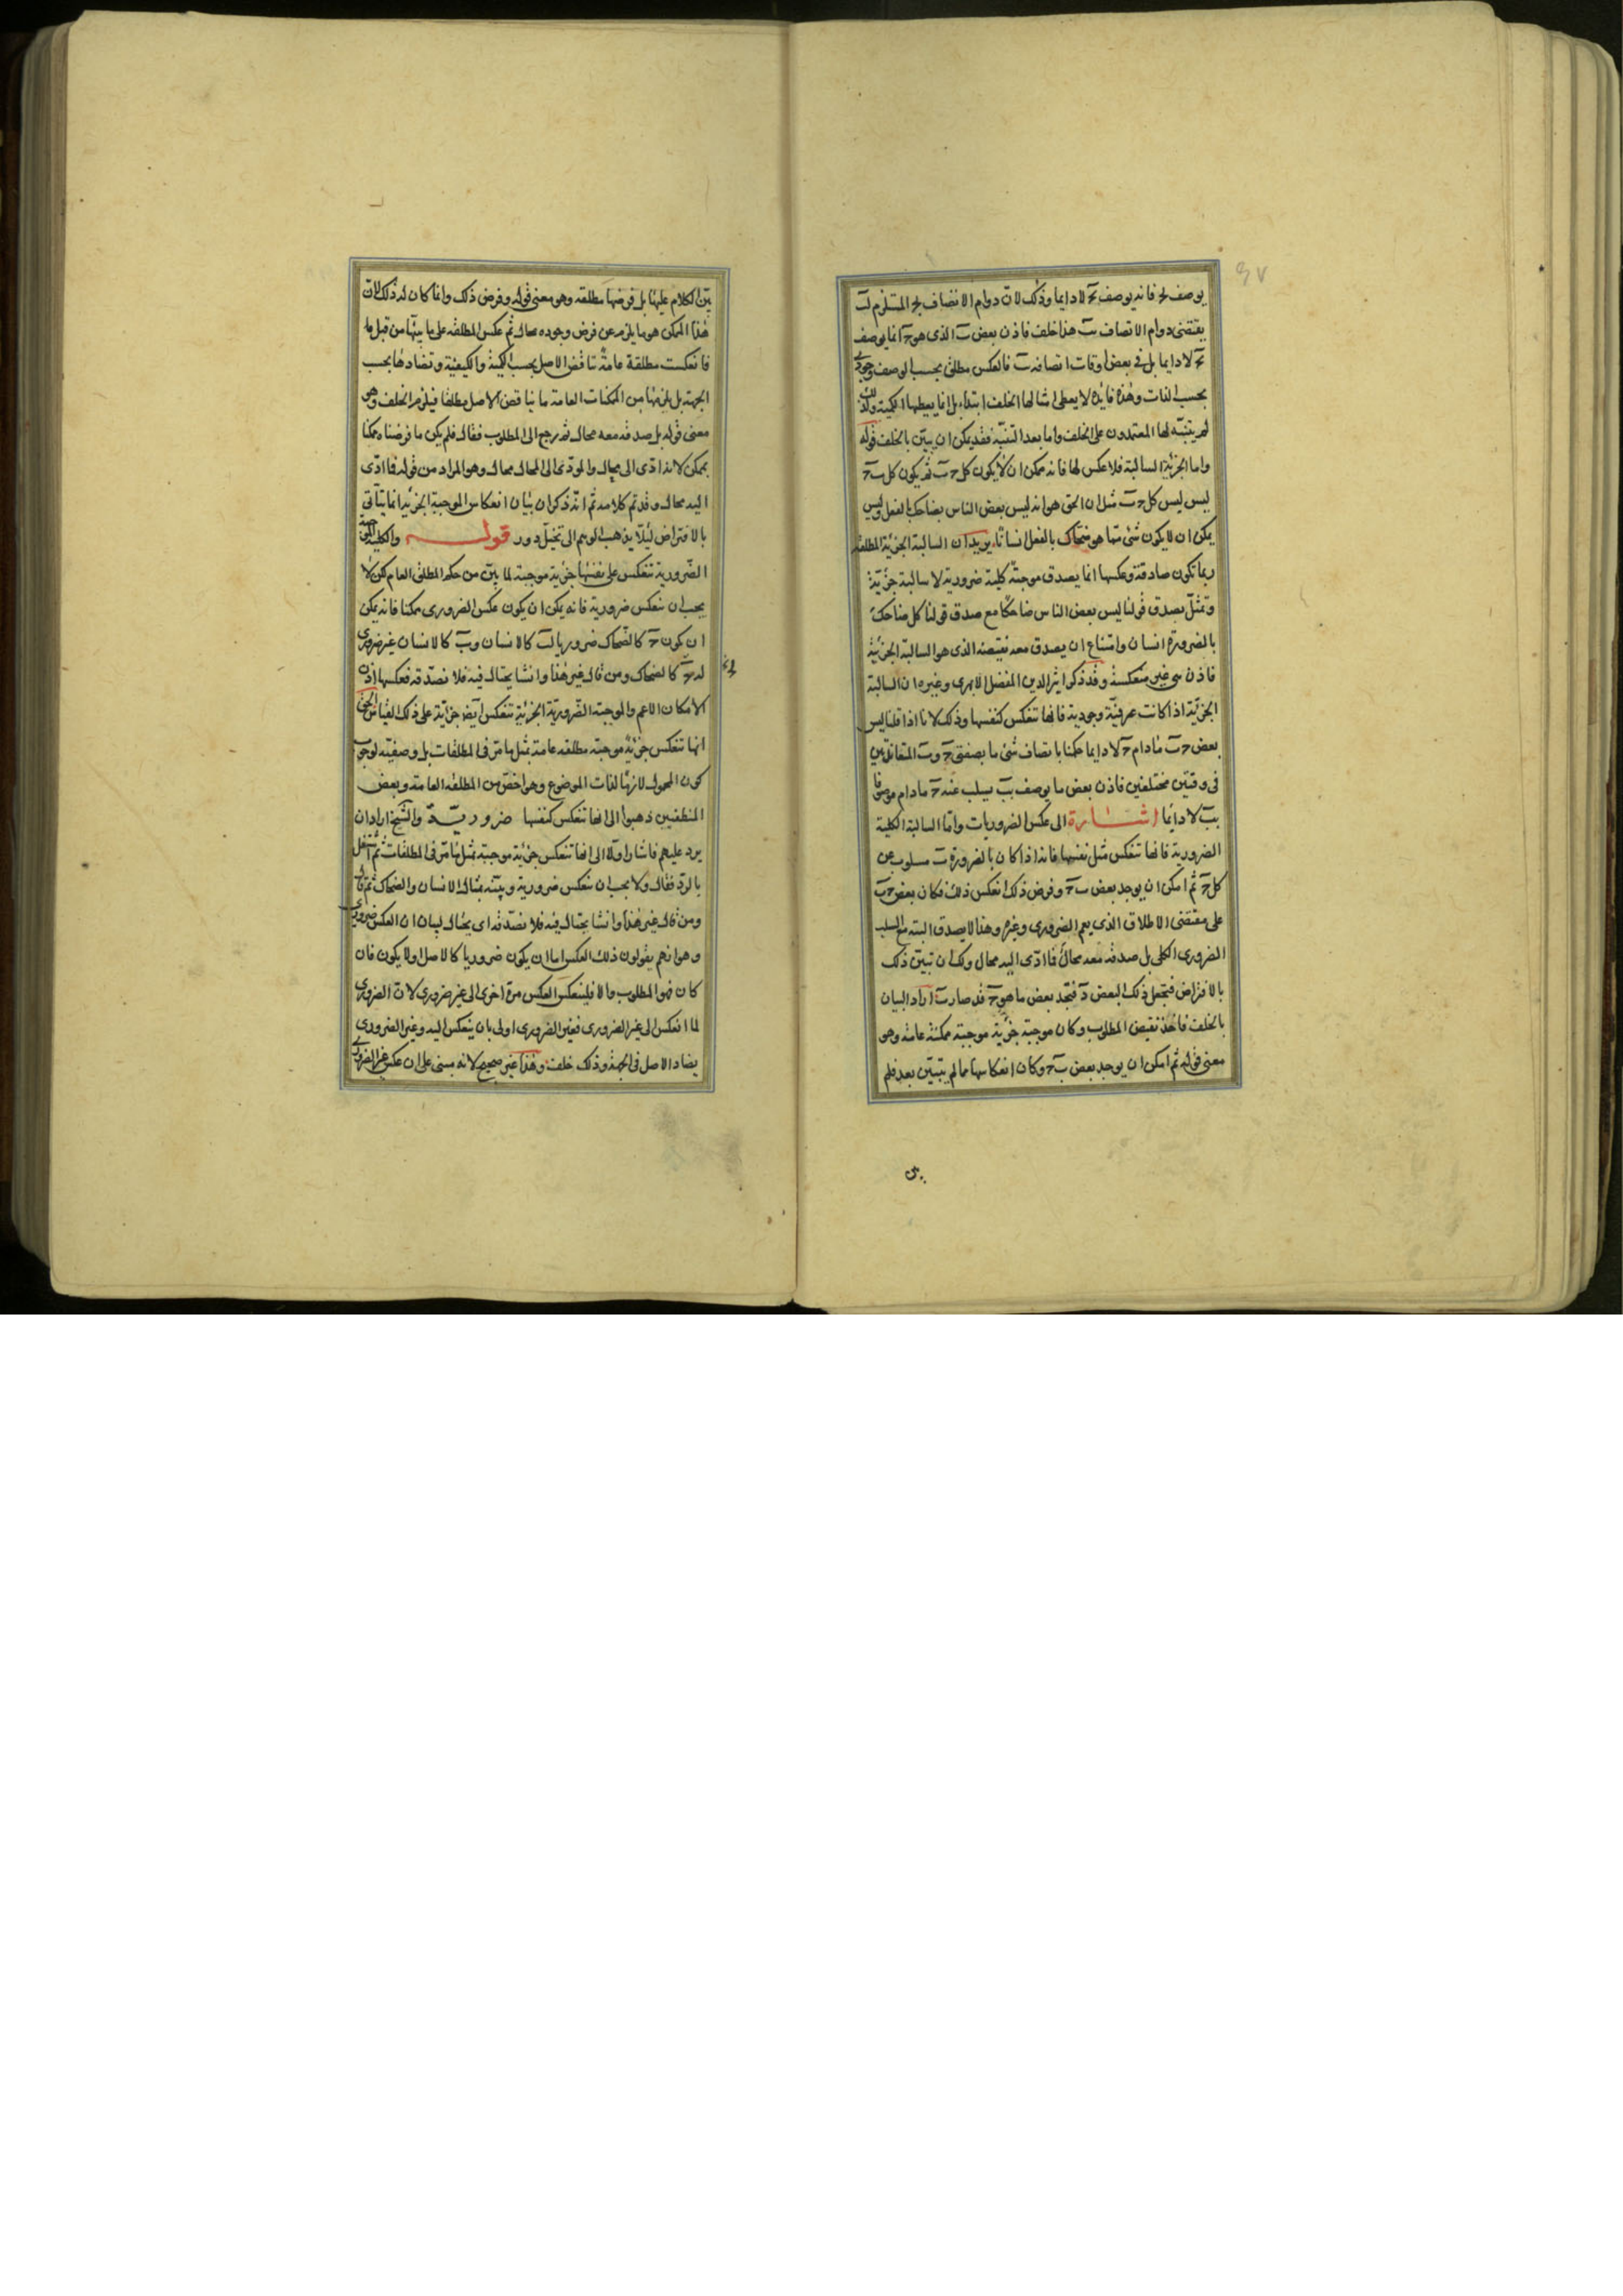 يوصف بج فانه يوصف بج لا دايما وذلك لان دوام الاتصاف بج المستلزم لب
يقتضى دوام الاتصاف ب هذا خلف فاذن بعض ب الذى هو ج انما يوصف
بج لا دايما بل فى بعض اوقات اتصافه ب فالعكس مطلق بحسب الوصف وجودى
بحسب الذات وهذه فايدة لا يعطى امثالها الخلف ابتداء بل انما يعطيها الحكمية ولذلك
لم يتنبه لها المعتمدون على الخلف واما بعد التنبيه فقد يمكن ان يبين بالخلف قوله
واما الجزئية السالبة فلا عكس لها فانه ممكن ان لا يكون كل ج ب ثم يكون كل ب ج
ليس ليس كل ج ب مثل ان الحق هو انه ليس بعض الناس بضاحك بالفعل وليس
يمكن ان لا يكون شئ مما هو ضحاك بالفعل انسانا يريد ان السالبة الجزئية المطلقة
ربما تكون صادقة وعكسها انما يصدق موجبة كلية ضرورية لا سالبة جزئية
وتمثل بصدق قولنا ليس بعض الناس ضاحكا مع صدق قولنا كل ضاحك
بالضرورة انسان وامتناع ان يصدق معه نقيضه الذى هو السالبة الجزئية
فاذن هى غير منعكسة وقد ذكر اثير الدين المفضل الابهرى وغيره ان السالبة
الجزئية اذا كانت عرفية وجودية فانها تنعكس كنفسها وذلك لانا اذا قلنا ليس
بعض ج ب مادام ج لا دايما حكمنا باتصاف شئ ما بصفتى ج وب المتقابلتين
فى وقتين مختلفين فاذن بعض ما يوصف بب يسلب عنه ج مادام موصوفا
بب لا دايما اشارة الى عكس الضروريات واما السالبة الكلية
الضرورية فانها تنعكس مثل نفسها فانه اذا كان بالضرورة ب مسلوب عن
كل ج ثم امكن ان يوجد بعض ب ج وفرض ذلك انعكس ذلك فكان بعض ج ب
على مقتضى الاطلاق الذى يعم الضرورى وغيره وهذا لا يصدق البتة مع السلب
الضرورى الكلى بل صدقه معه محال فما ادى اليه محال ولك ان تبين ذلك
بالافتراض فتجعل ذلك البعض د فتجد بعض ما هو ج قد صار ب اراد البيان
بالخلف فاخذ نقيض المطلوب وكان موجبة جزئية موجبة ممكنة عامة وهو
معنى قوله ثم امكن ان يوجد بعض ب ج وكان انعكاسها مما لم يتبين بعد فلم
يبن الكلام عليها بل فرضها مطلقه وهو معنى قوله وفرض ذلك وانما كان له ذلك لان
هذا الممكن هو ما يلزم عن فرض وجوده محال ثم عكس المطلقه على ما بينها من قبل ما
فانعكست مطلقة عامة تناقض الاصل بحسب الكمية والكيفية وتضادها بحسب
الجهة بل يلزمها من الممكنات العامة ما يناقض الاصل مطلقا فيلزم الخلف وهو
معنى قوله بل صدقه معه محال ثم رجع الى المطلوب فقال فلم يكن ما فرضناه ممكنا
بممكن لانه ادى الى محال والمودى الى المحال محال وهو المراد من قوله فما ادى
اليه محال وقد تم كلامه ثم انه ذكر ان بيان انعكاس الموجبة الجزئية انما يتاتى
بالافتراض ليلا يذهب الوهم الى تخيل دور قوله والكلية الموجبة
الضرورية تنعكس على نفسها جزئية موجبة لما بين من حكم المطلق العام لكن لا
يجب ان تنعكس ضرورية فانه يمكن ان يكون عكس الضرورى ممكنا فانه يمكن
ان يكون ج كالضحاك ضروريا لب كالانسان وب كالانسان غير ضرورى
له ج كالضحاك ومن قال غير هذا وانشا يحتال فيه فلا تصدقه فعكسها اذن
الامكان الاعم والموجبة الضرورية الجزئية تنعكس ايضا جزئية على ذلك القياس الحق
انها تنعكس جزئية موجبة مطلقه عامة بمثل ما مر فى المطلقات بل وصفية لوجوب
كون المحمول لازما لذات الموضوع وهو اخص من المطلقه العامة وبعض
المنطقيين ذهبوا الى انها تنعكس كنفسها ضرورية والشيخ اراد ان
يرد عليهم فاشار اولا الى انها تنعكس جزئية موجبة بمثل ما مر فى المطلقات ثم اشتغل
بالرد فقال ولا يجب ان تنعكس ضرورية وبينه بمثال الانسان والضحاك ثم قال
ومن قال غير هذا وانشا يحتال فيه فلا تصدقه اى يحتال لبيان ان العكس ضرورى
وهو انهم يقولون ذلك العكس اما ان يكون ضروريا كالاصل او لا يكون فان
كان فهو المطلوب والا فلينعكس العكس مرة اخرى الى غير ضرورى لان الضرورى
لما انعكس الى غير الضرورى فغير الضرورى اولى بان ينعكس اليه وغير الضرورى
يضاد الاصل فى الجهة وذلك خلف وهذا غير صحيح لانه مبنى على ان عكس غير الضرورى